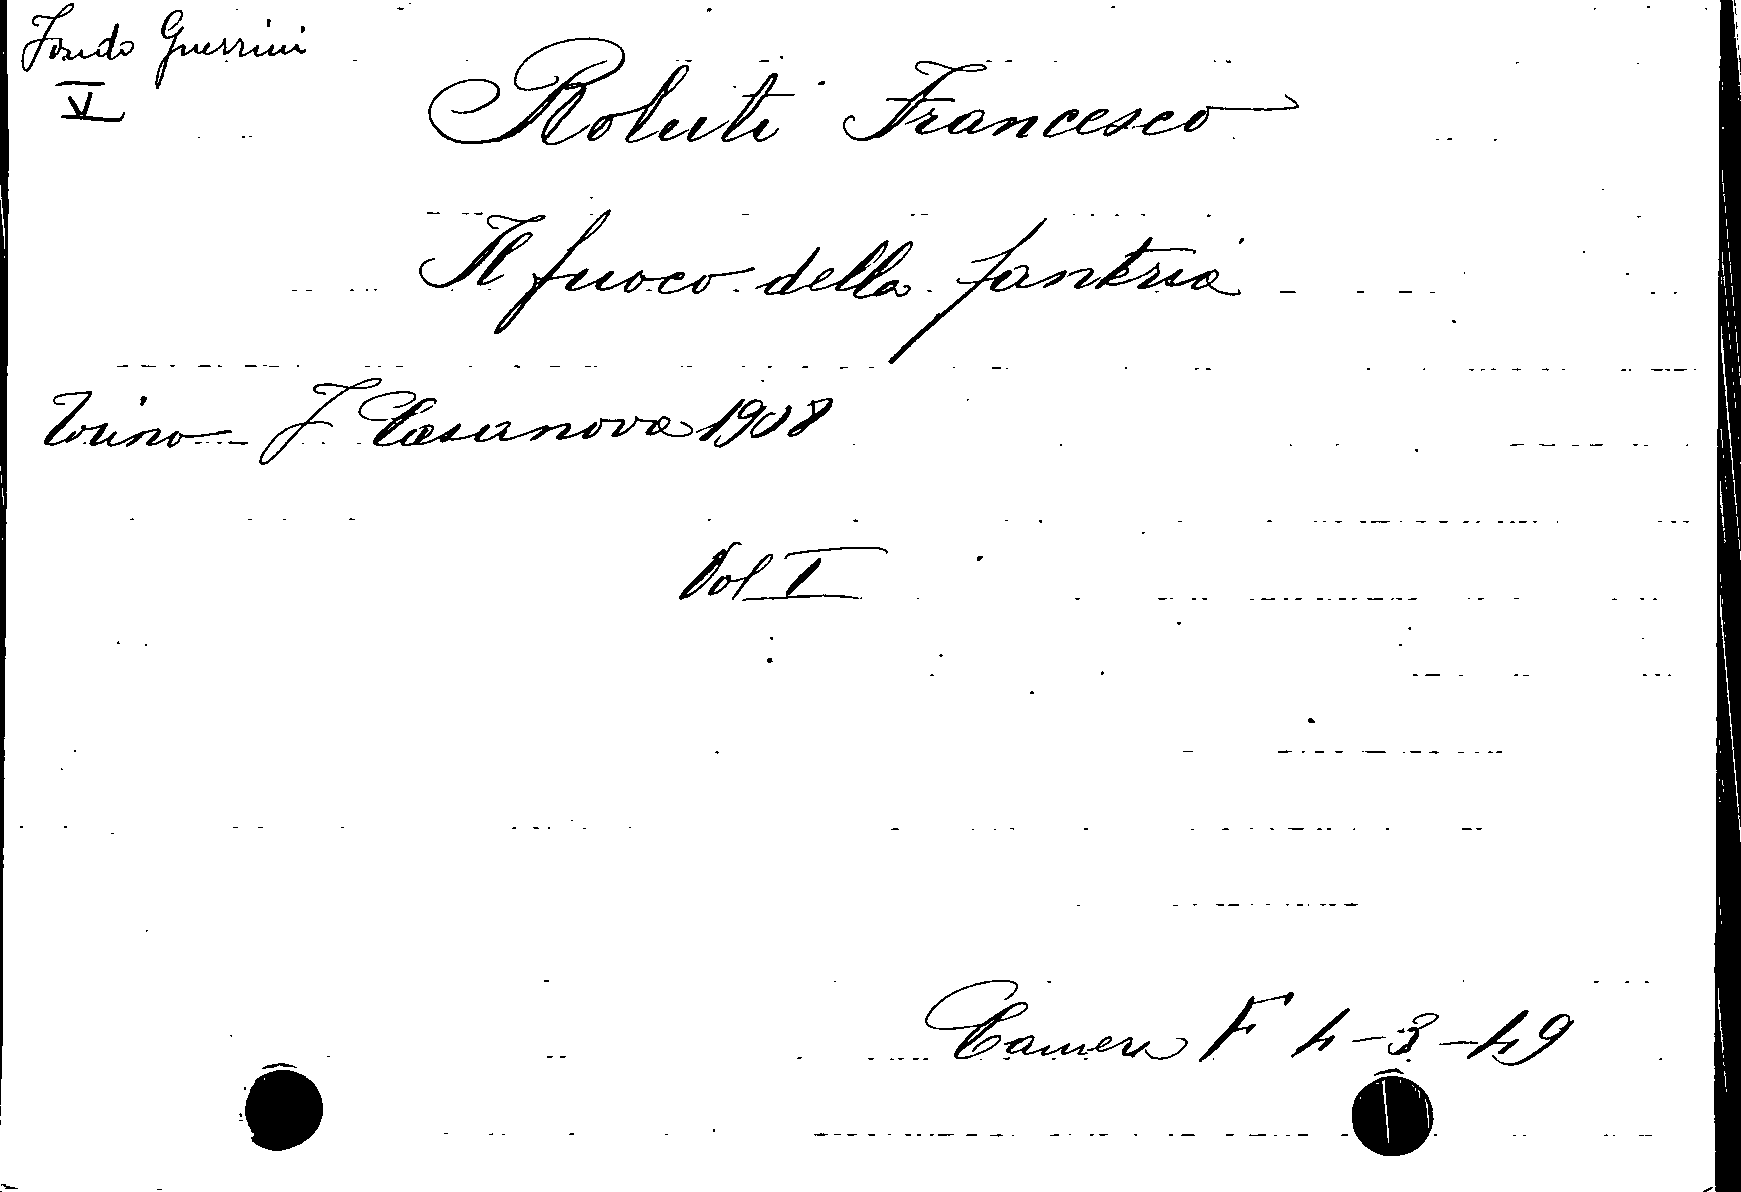 Fondo Guerrini
V
Roluti Francesco
Il fuoco della fanteria
Torino - F Casanova 1908
Vol I
Camera F 4-3-49